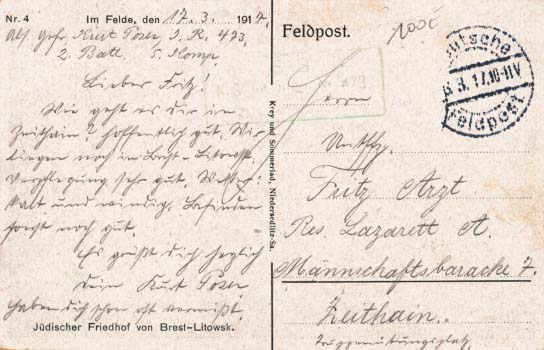 Nr. 4 Im Felde, den 17. 3. 1917.
Abs. Gefr. Kurt Poser I. R. 473
2. Batl. 5. Komp.
Lieber Fritz!
Wie geht es dir in
Zeithain? hoffentlich gut. Wir
liegen noch in Brest-Litowsk.
Verpflegung sehr gut. Wetter
kalt und windig. Befinden
sonst noch gut.
Es grüßt dich herzlich
dein Kurt Poser
haben dich schon oft vermißt.
Jüdischer Friedhof von Brest-Litowsk.
Krey und Sommerlad, Niedersedlitz-Sa.
Feldpost.
Deutsche
3. 17. 10-11V
Feldpost
Herrn
Untffz.
Fritz Arzt
Res. Lazarett A.
Mannschaftsbaracke 7.
Zeithain.
Truppenübungsplatz